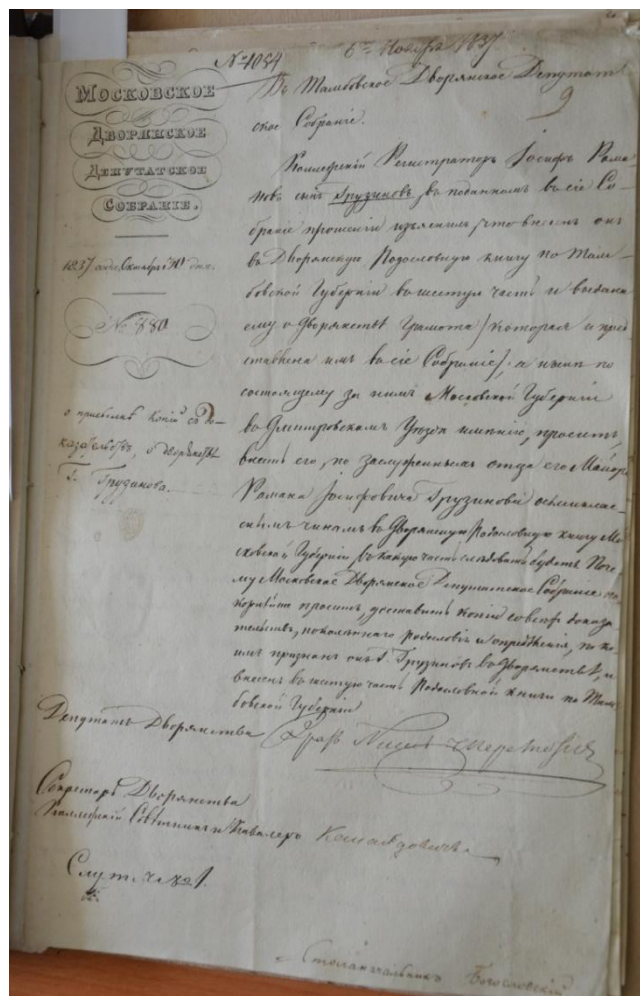 № 1084
6го Ноября 1837
9
МОСКОВСКОЕ
ДВОРЯНСКОЕ
ДЕПУТАТСКОЕ
СОБРАНІЕ.
1837 года, Октября дня.
№ 880
о присылкѣ копій съ До-
казательствъ, о дворянствѣ
Г. Грузинова.
Въ Тамбовское Дворянское Депутат
ское Собраніе.
Коллежскій Регистраторъ Іосифъ Рома
новъ сынъ Грузиновъ, въ поданномъ въ сіе Со-
браніе прошеніи изъяснилъ, что внесенъ онъ
въ Дворянскую Родословную книгу по Там-
бовской Губерніи въ шестую часть и выдана
ему о дворянствѣ Грамота (которая и пред
ставлена имъ въ сіе Собраніе), а нынѣ по
состоящему за нимъ Московской Губерніи
въ Дмитровскомъ Уѣздѣ имѣнію, проситъ
внесть его, по заслуженнымъ отца его Маіора
Романа Іосифовича Грузинова осьмиклас-
снымъ чиномъ въ Дворянскую Родословную книгу Мо
сковской Губерніи, въ какую часть слѣдовать будетъ. Поче
му Московское Дворянское Депутатское Собраніе по
корнѣйше проситъ, доставить копіи со всѣхъ доказа
тельствъ, поколѣннаго родословія и опредѣленія, по ко
имъ признанъ онъ Г. Грузиновъ въ дворянствѣ, и
внесенъ въ шестую часть Родословной книги по Там
бовской Губерніи
Депутатъ Дворянства Графъ
Секретарь Дворянства
Коллежскій Совѣтникъ и Кавалеръ
Столоначальникъ Богословскій